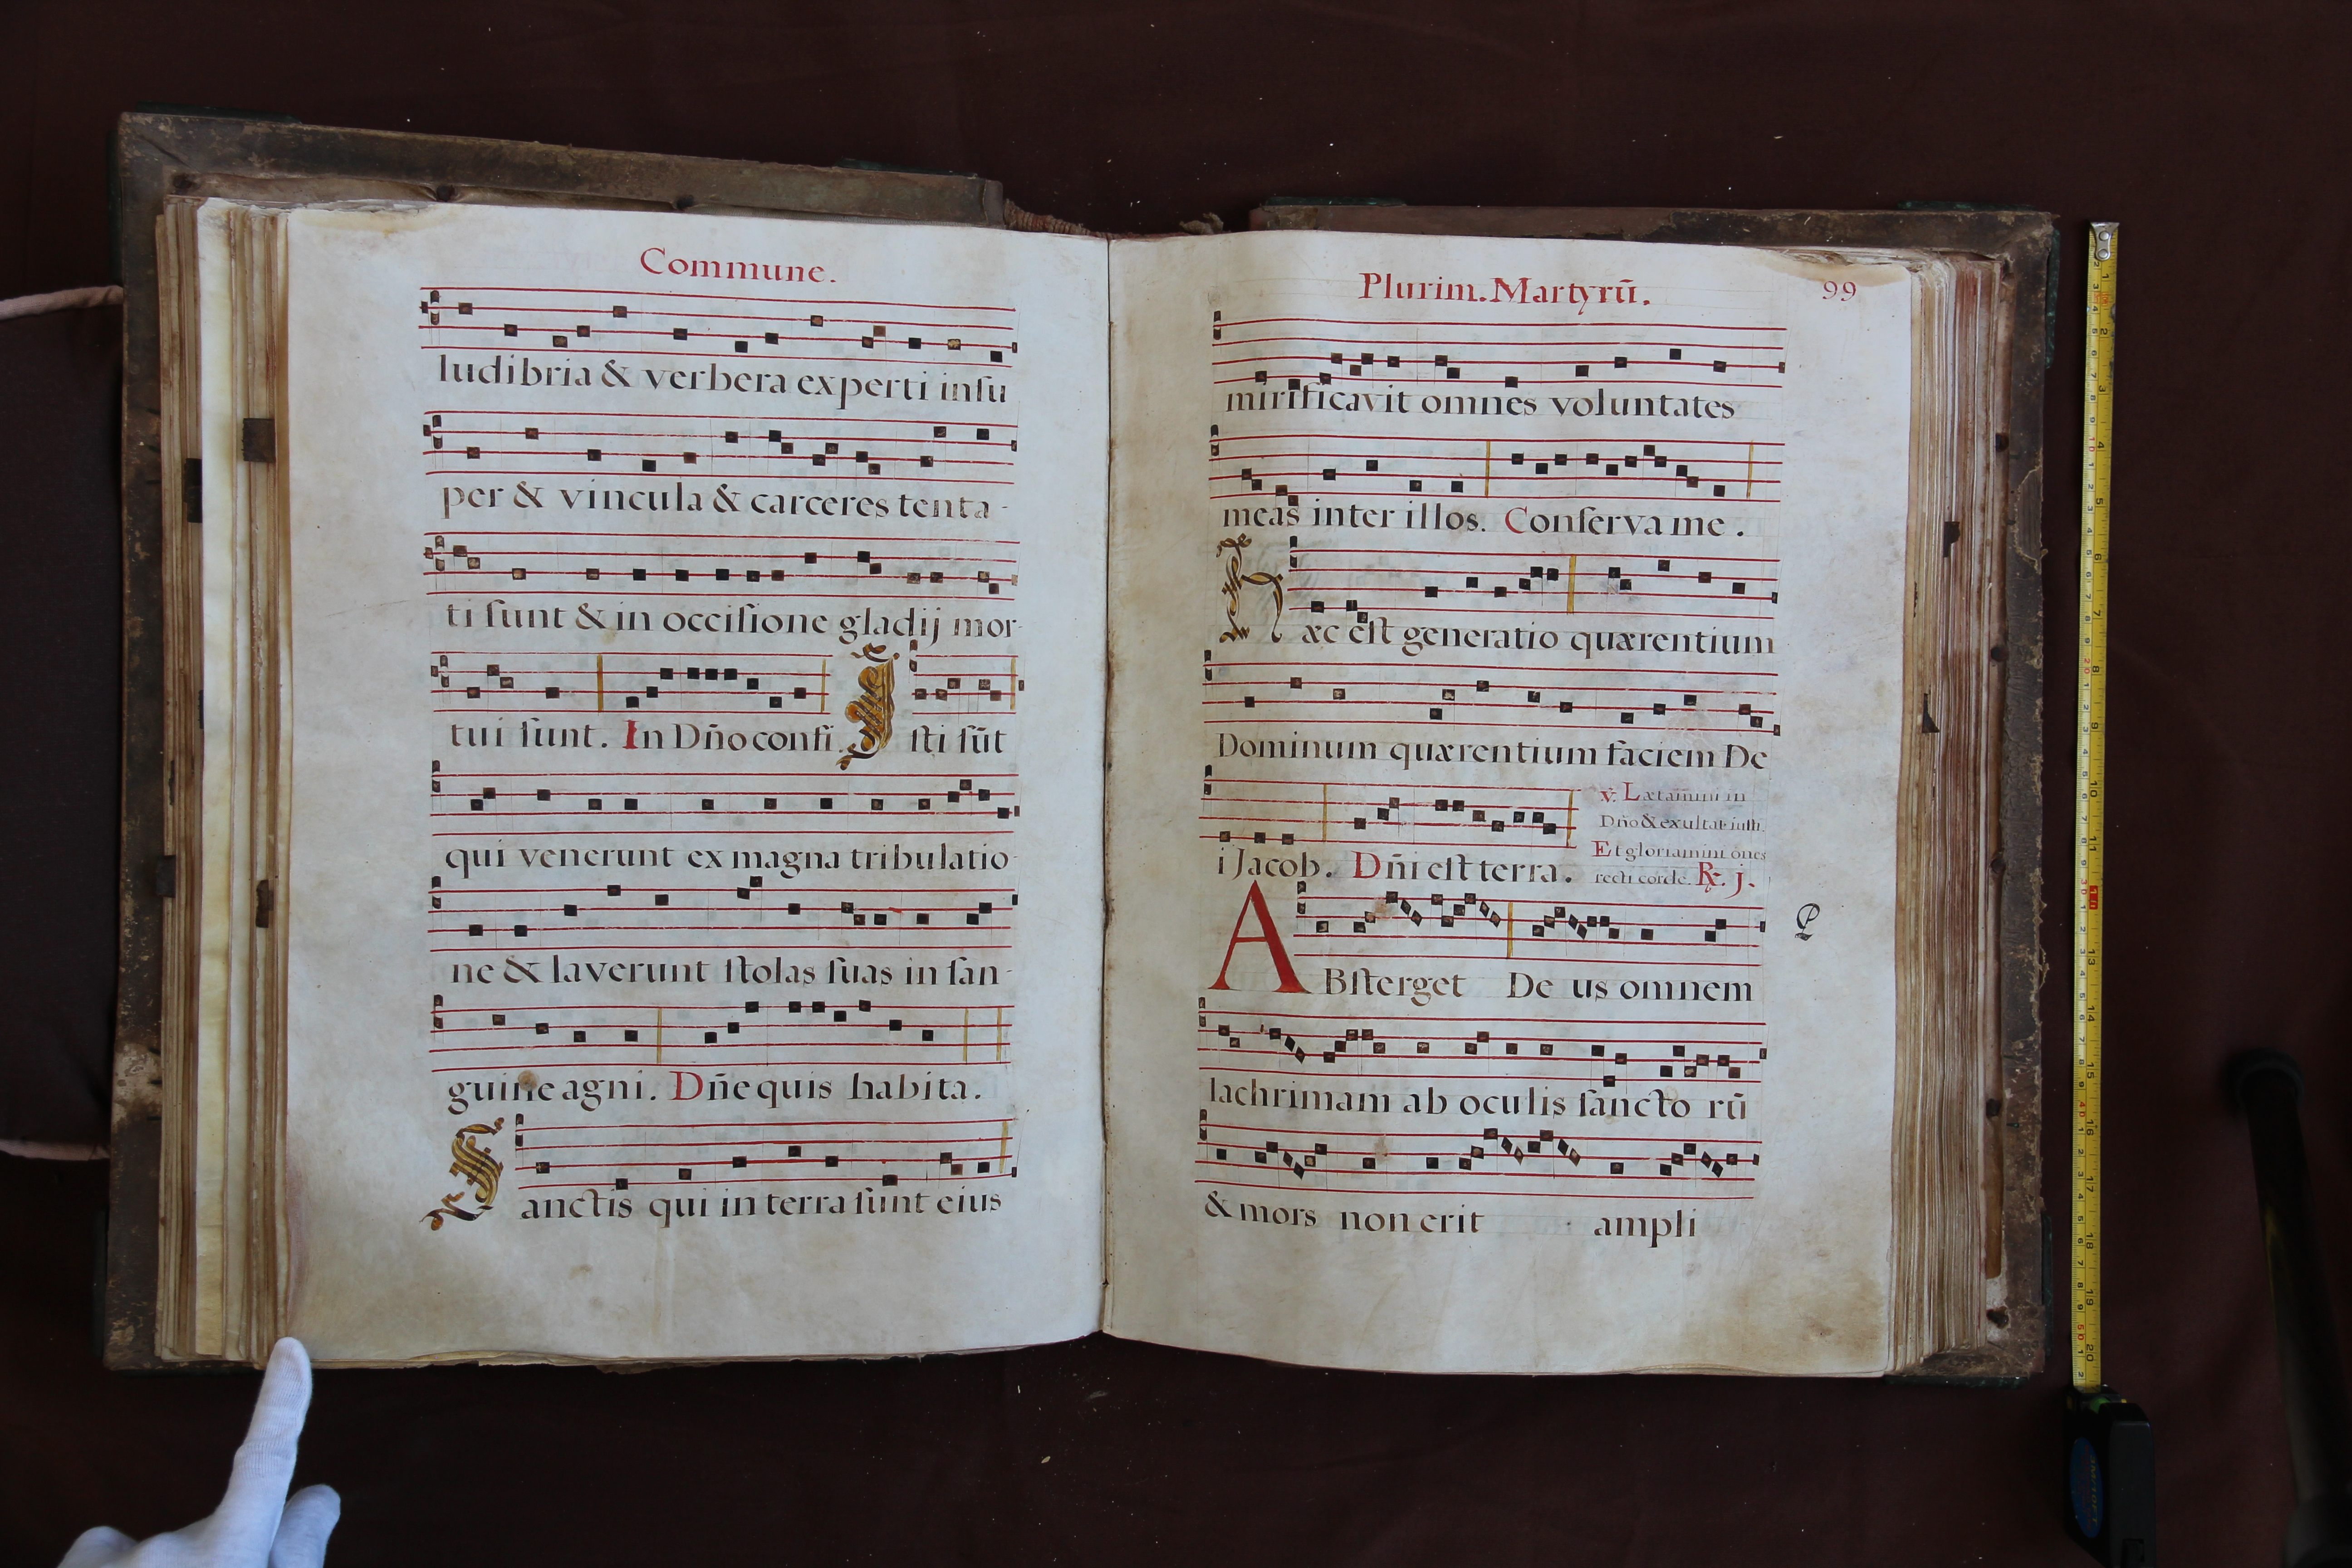 Commune.
ludibria & verbera experti insu
per & vincula & carceres tenta-
ti sunt & in occisione gladij mor-
tui sunt. In Dño confi. Isti sūt
qui venerunt ex magna tribulatio-
ne & laverunt stolas suas in san-
guine agni. Dñe quis habita.
Sanctis qui in terra sunt eius
Plurim. Martyrū.
99
mirificavit omnes voluntates
meas inter illos. Conserva me.
Hæc est generatio quærentium
Dominum quærentium faciem De
i Jacob. Dñi est terra.
℣. Lætamini in
Dño & exultat iusti.
Et gloriamini oñes
recti corde. ℟. j.
ABsterget Deus omnem
lachrimam ab oculis sanctorū
& mors non erit ampli